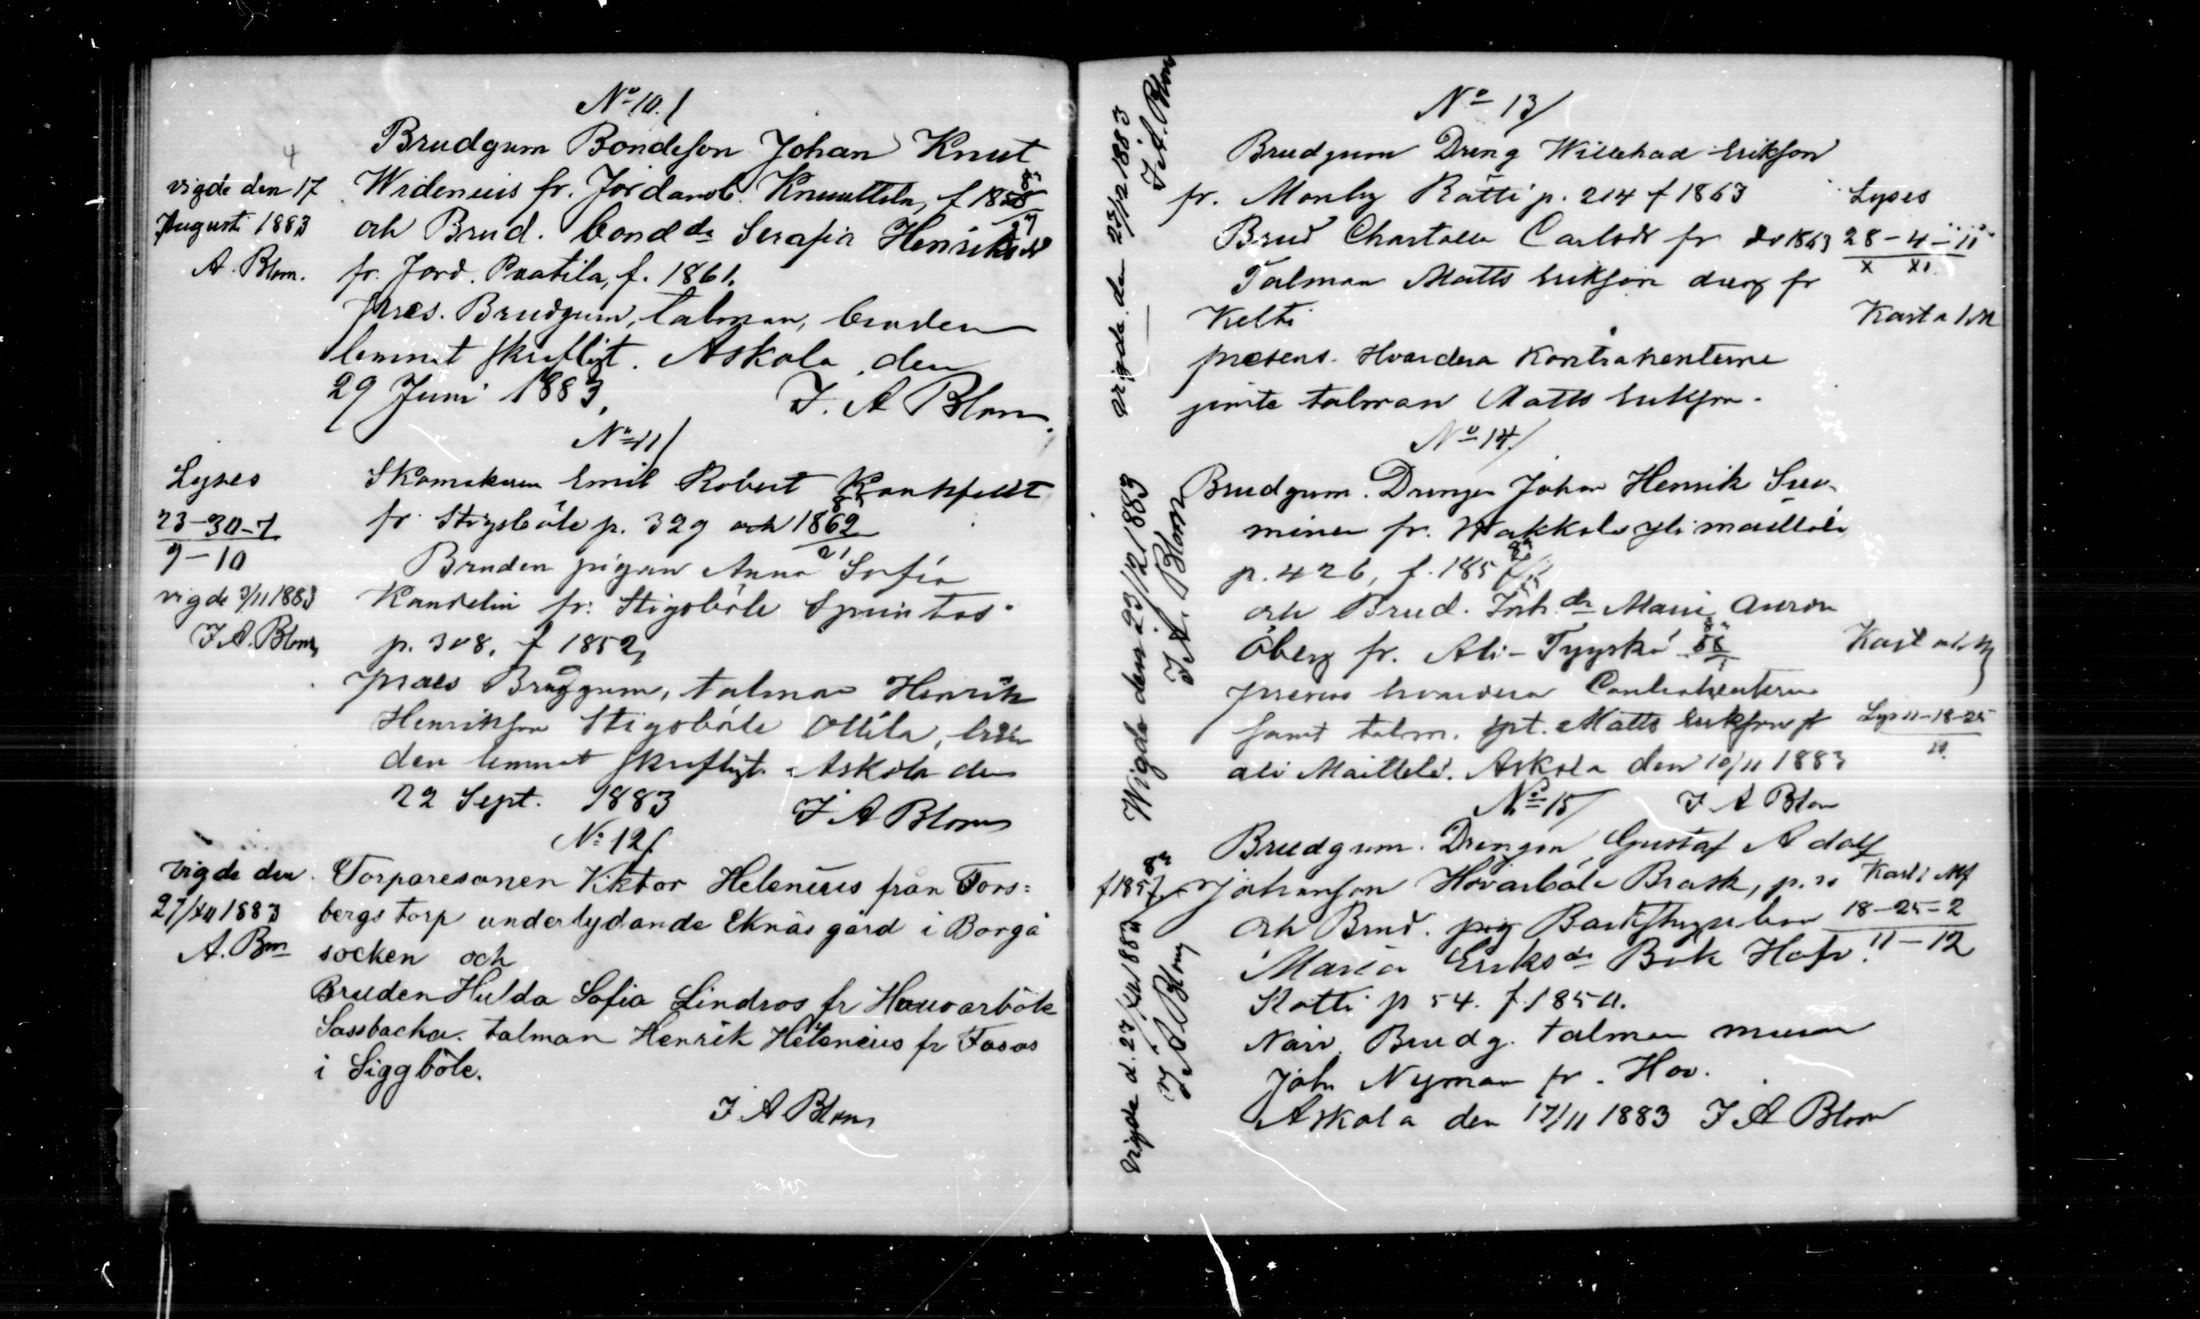 No 10./
Brudgum Bondeson Johan Knut
vigde den 17
August 1883
A. Blom.
Widenius fr. Jordansb. Knuuttila, f 1858
och Brud. bonddr Serafia Henriksdr
fr. Jord. Paatila, f. 1861.
præs. Brudgum, talman, bruden
lemnat skriftligt. Askola den
29 Juni 1883, F. A Blom.
No 11/
Lyses
23-30-7
9-10
vigde 3/11 1883
F. A. Blom
Skomakaren Emil Robert
fr Stigsböle p. 329 och 1862
Bruden pigan Anna Sofia
Kandelin fr. Stigsböle
p. 308. f 1852,
præs Brudgum, talman Henrik
Henrikson Stigsböle Ollila, bru
den lemnat skriftligt. Askola den
22 Sept. 1883 F A Blom
No 12/
vigde den
27/XII 1883
A. Bm
Torparesonen Viktor Helenius från Fors=
bergs torp underlydande Eknäs gård i Borgå
socken och
Bruden Hulda Sofia Lindros fr Houvarböle
Sassbacka. talman Henrik Helenius fr Fasas
i Siggböle.
F A Blom
vigde den 23/12 1883
F. A. Blom
No 13/
Brudgum Dreng Willehad Erikson
fr. Monby Rätti p. 214 f 1863
Brud Carlsdr fr do 1863
Talman Matts Erikson dreng fr
Kelti
præsens. Hvardera Kontrahenterne
jemte talman Matts Erikson.
Lyses
28-4-11
X XI
Wigde den 23/12 1883
F. A. Blom
No 14/
Brudgum. Drengen Johan Henrik Suo-
minen fr. Wakkola yli maittälä
p. 426, f. 185
och Brud. Maria
Öberg fr. Ali-Tyyskä
præsens hvardera Contrahenterne
samt talm. Matts Erikson fr
ali Maittälä. Askola den 10/11 1883
F A Blom
Lys 11-18-25
11.
Vigde d. 27/XII 1883
F A Blom
No 15/
Brudgum. Drengen Gustaf Adolf
Johanson Hovarböle Brask, p.
f 1857
och Brud.
Maria Eriksdr Bök Hofv.
Rätti p 54. f. 1850.
Närv. Brudg. talman
Joh. Nyman fr. Hov.
Askola den 17/11 1883 F A Blom
18-25-2
11-12